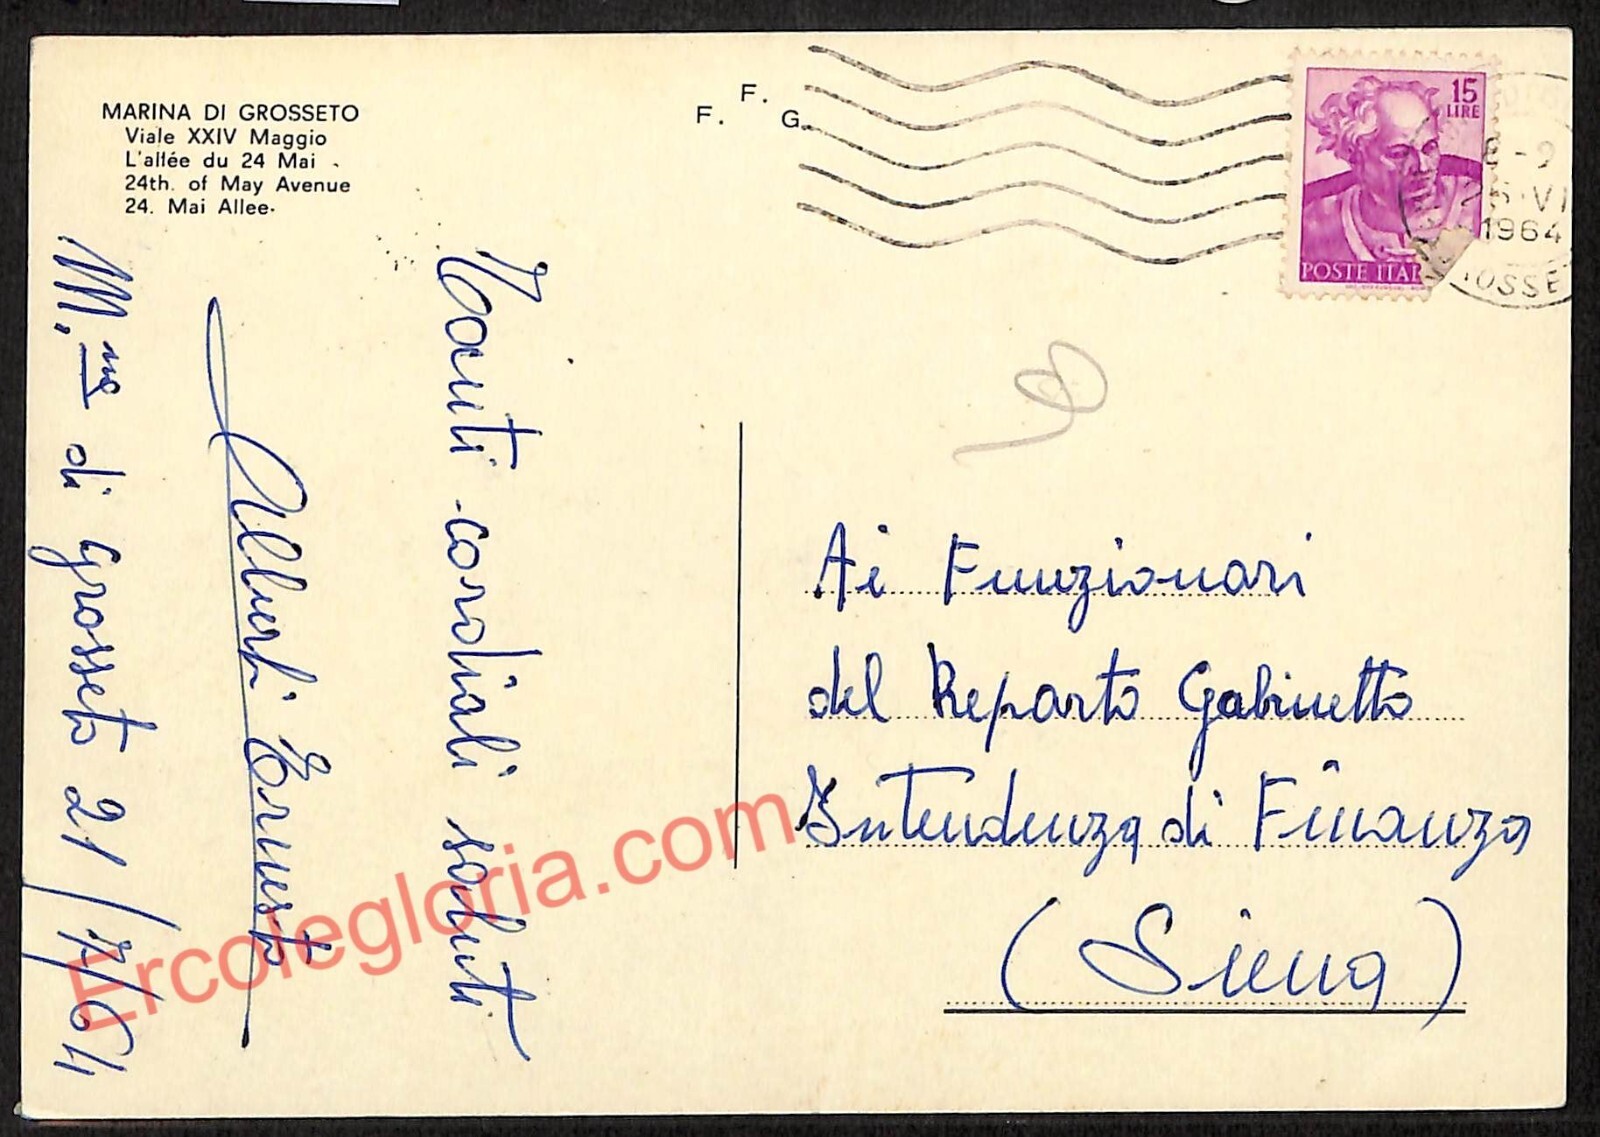 MARINA DI GROSSETO
Viale XXIV Maggio
L'allée du 24 Mai
24th. of May Avenue
24. Mai Allee
F. F. G.
15
LIRE
POSTE ITAL
8-9
1964
OSSE
M.na di Grosseto 21/7/64
Alberti Ernesto
Tanti cordiali saluti
Ai Funzionari
del Reparto Gabinetto
Intendenza di Finanza
(Siena)
Ercolegloria.com